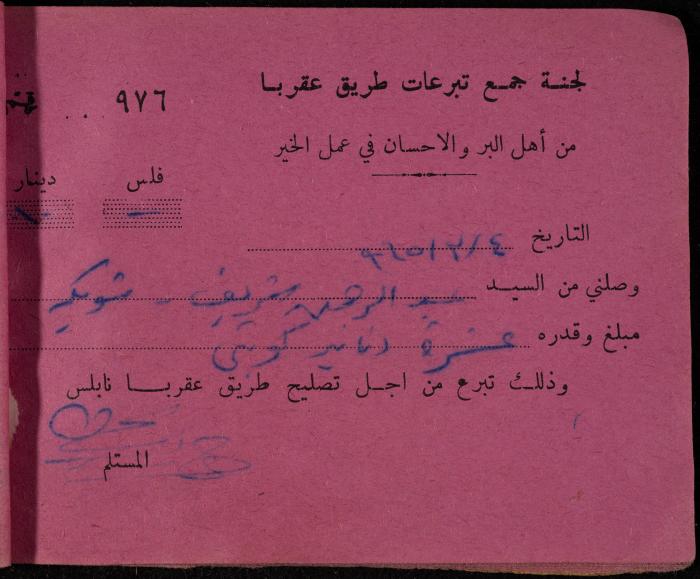 لجنة جمع تبرعات طريق عقربا
٩٧٦
من أهل البر والاحسان في عمل الخير
فلس دينار
التاريخ ٤/٢/٩٦٥
وصلني من السيد عبد الرحمن شريف - شويكي
مبلغ وقدره عشرة دنانير كويتي
وذلك تبرع من اجل تصليح طريق عقربا نابلس
المستلم